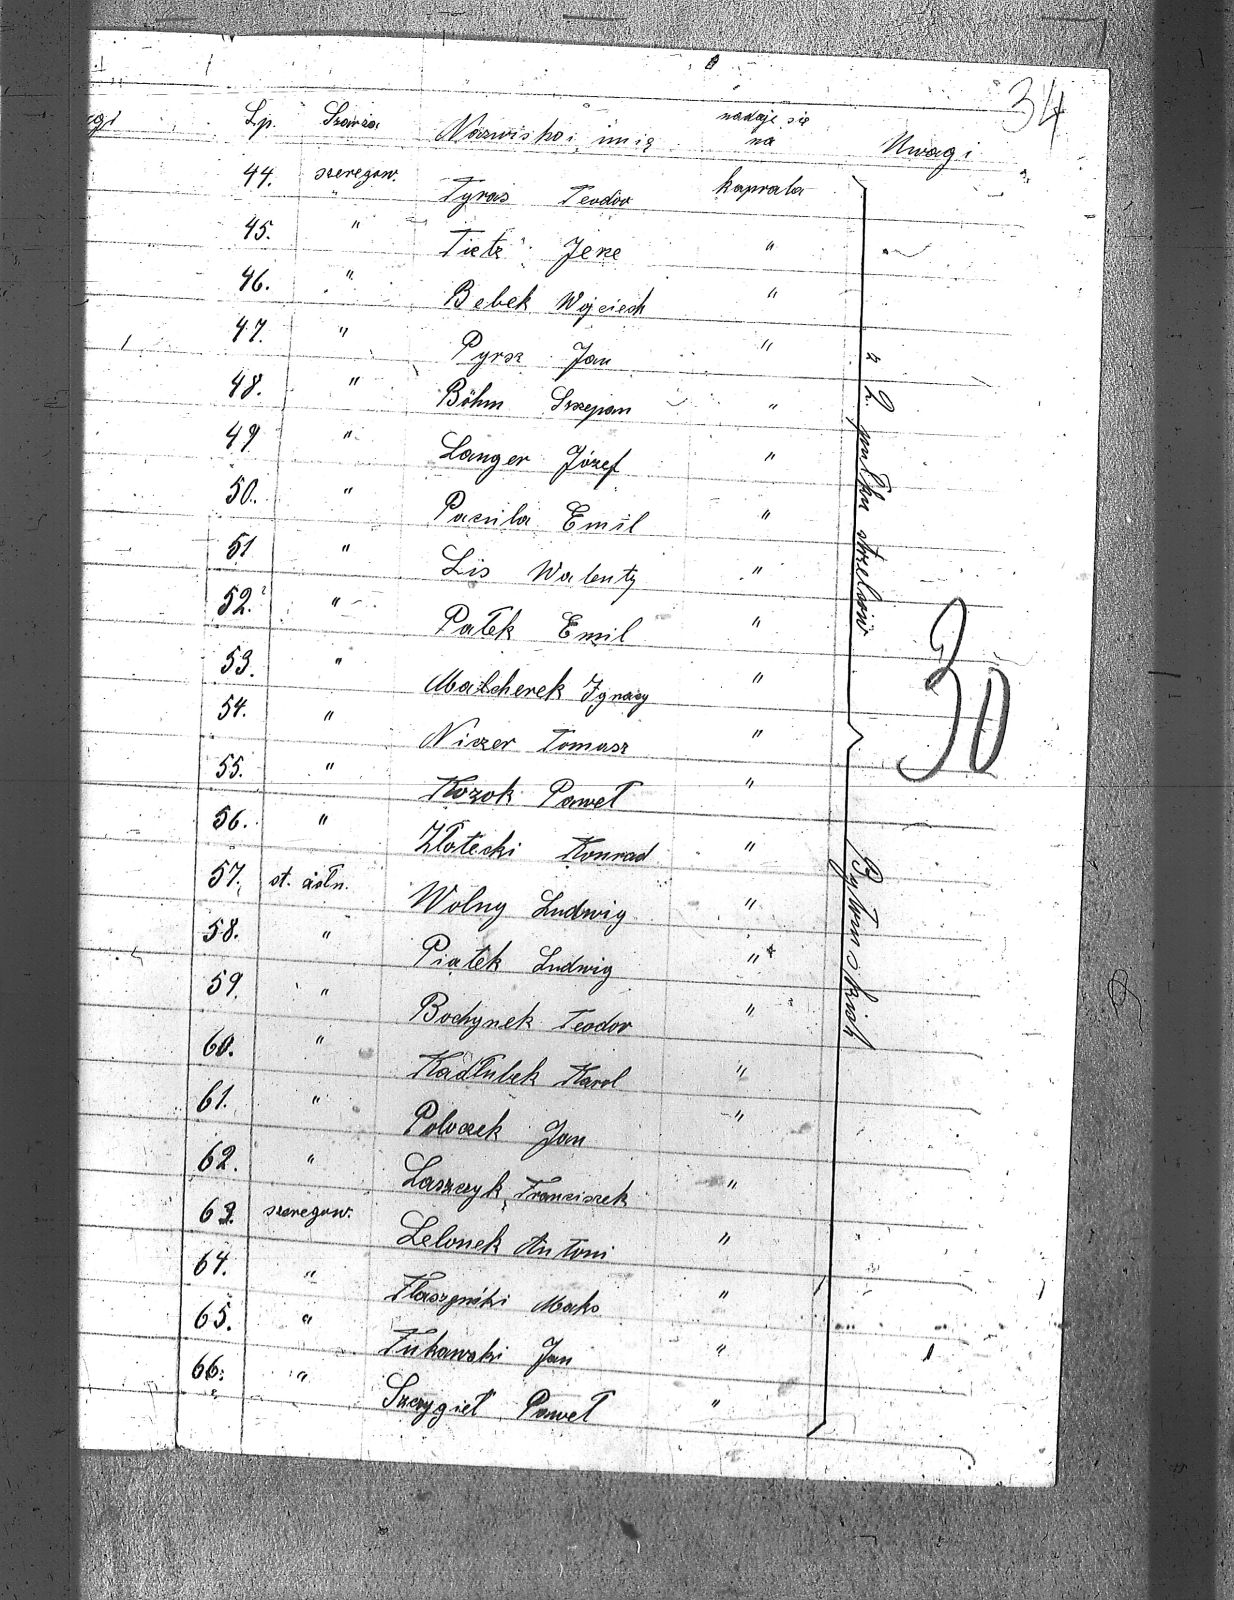 34
Lp. Szarża Nazwisko i imię nadaje się na Uwagi
44. szeregow. Tyras Teodor kaprala
45. " Tietz Jerze "
46. " Bebek Wojciech "
47. " Pyrsz Jan "
48. " Böhm Szczepan "
49 " Langer Józef "
50. " Emil "
51 " Lis Walenty "
52. " Pałek Emil "
53. " Malcherek Ignacy "
54. " Niczer Tomasz "
55. " Kozok Paweł "
56. " Złotecki Konrad "
57. st. Wolny Ludwig "
58. " Piątek Ludwig "
59. " Bochynek Teodor "
60. " Kadłubek Karol "
61. " Poloczek Jan "
62. " Laszczyk Franciszek "
63. szeregow. Lelonek Antoni "
64. " Maks "
65. " Jan "
66. " Szczygieł Paweł "
z 2 pułku strzelców Bytomskich
30